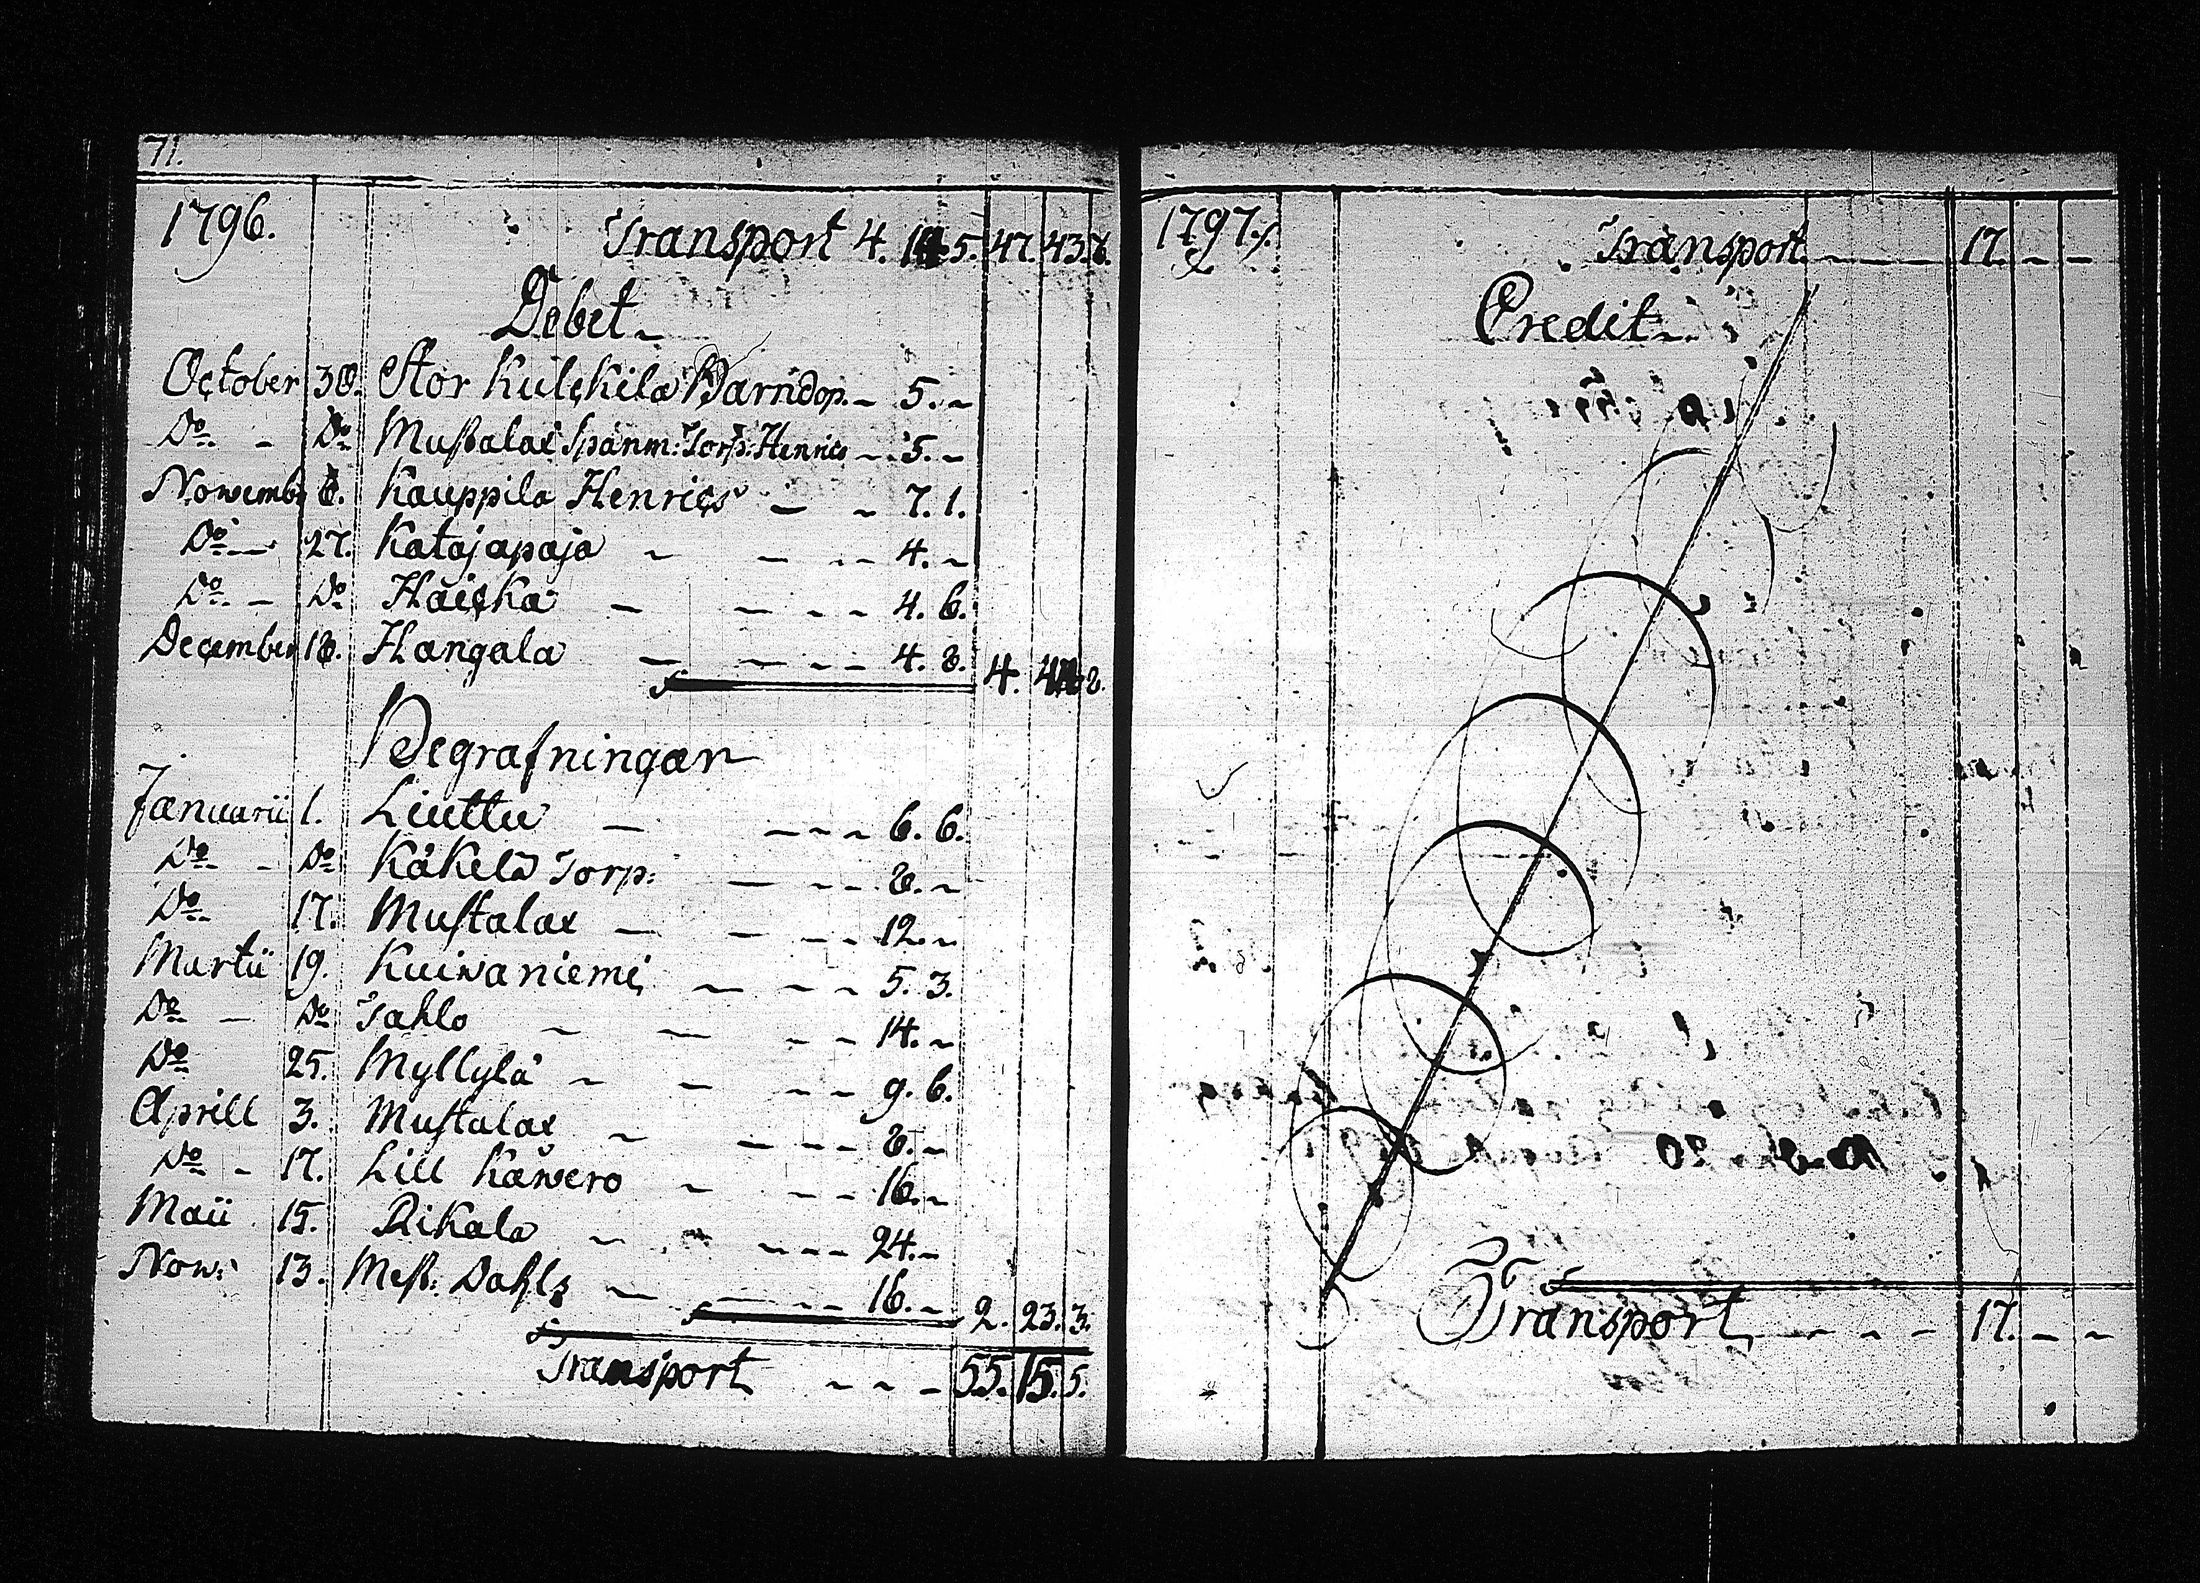 71.
1796. Transport 4. 14. 5. 47. 43. 8.
Debet
October 30. Stor Kulckila Barndop. 5. -
Do. - Do Mustalax Spanm: Torp: Henrics 5. -
Novemb 6. Kauppila Henrics 7. 1.
Do - 27. Katajapaja 4. -
Do. - Do Haicka 4. 6.
December 18. Hangala 4. 8. 4. 8.
Begrafningar
Januarii 1. Liuttu 6. 6.
Do - Do Käkelä Torp: 8. -
Do 17. Mustalax 12. -
Martii 19. Kuivaniemi 5. 3.
Do - Do Tahlo 14. -
Do 25. Myllylä 9. 6.
Aprill 3. Mustalax 8. -
Do - 17. Lill Käwero 16. -
Maii 15. Rikala 24. -
Now: 13. Mest: Dahls 16. - 2. 23. 3.
Transport - - - 55. 15. 5.
1797.
Transport. - 17. - -
Credit
Transport - - - - 17. - -